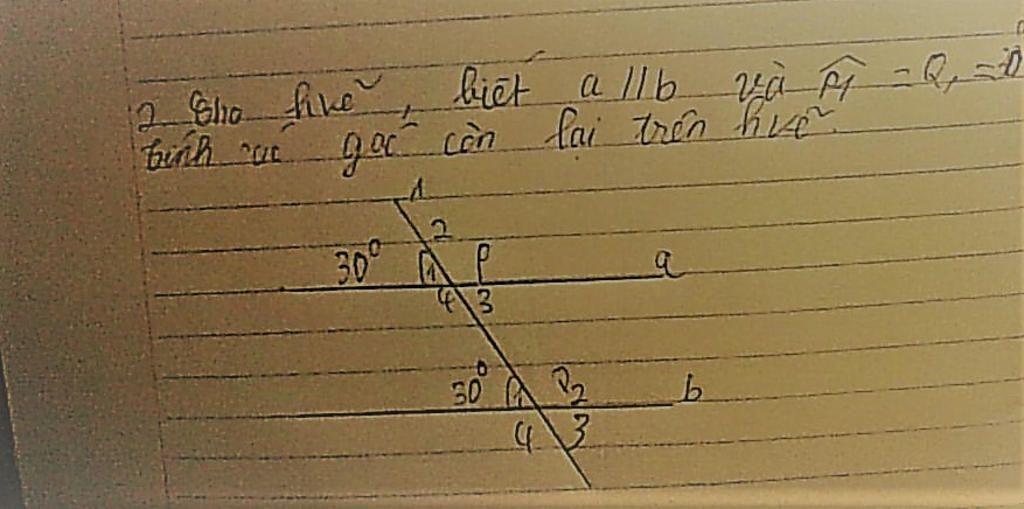 2 Cho hvẽ, biết a // b và P̂1 = Q1 =
tính các góc còn lại trên hvẽ.
2
30° 1 P a
4 3
30° 1 Q2 b
4 3